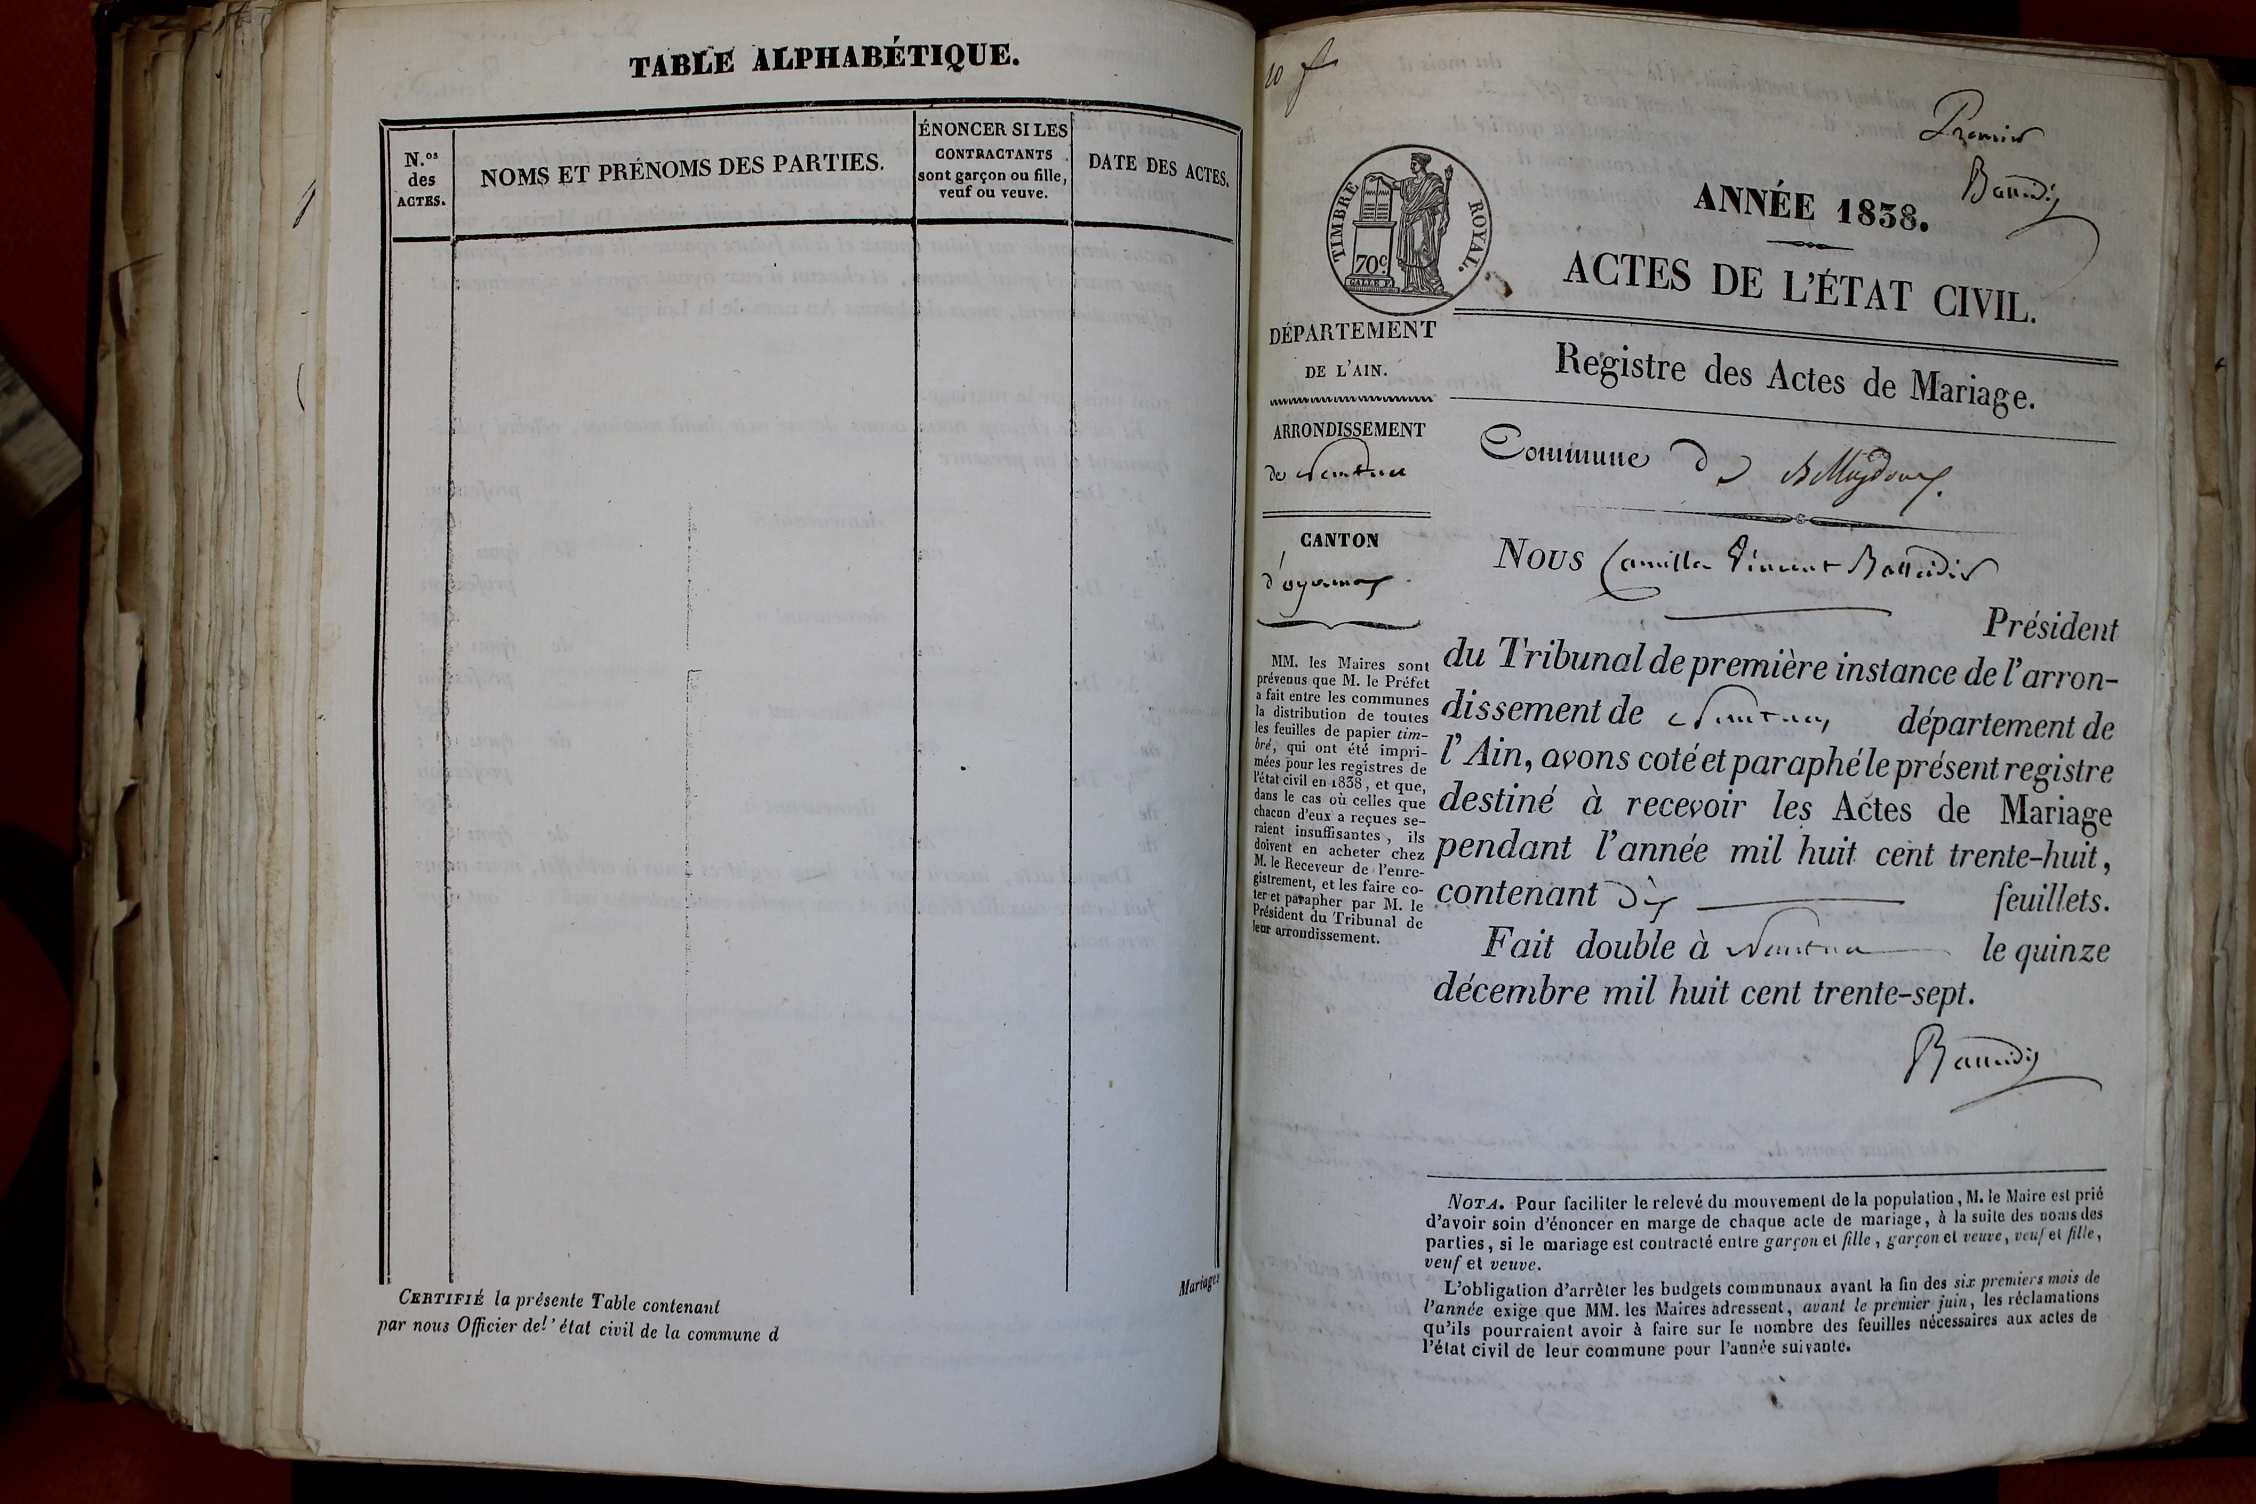 TABLE ALPHABÉTIQUE.
N.os
des
ACTES.
NOMS ET PRÉNOMS DES PARTIES.
ÉNONCER SI LES
CONTRACTANTS
sont garçon ou fille,
veuf ou veuve.
DATE DES ACTES.
CERTIFIÉ la présente Table contenant
par nous Officier de l'état civil de la commune d
Mariages
10 f
Premier
TIMBRE ROYAL.
70c.
ANNÉE 1838.
ACTES DE L'ÉTAT CIVIL.
Registre des Actes de Mariage.
DÉPARTEMENT
DE L'AIN.
ARRONDISSEMENT
de Nantua
CANTON
d'oyonnax
MM. les Maires sont
prévenus que M. le Préfet
a fait entre les communes
la distribution de toutes
les feuilles de papier tim-
bré, qui ont été impri-
mées pour les registres de
l'état civil en 1838, et que,
dans le cas où celles que
chacun d'eux a reçues se-
raient insuffisantes, ils
doivent en acheter chez
M. le Receveur de l'enre-
gistrement, et les faire co-
ter et parapher par M. le
Président du Tribunal de
leur arrondissement.
Commune de Belleydoux.
NOUS Camille Vincent
Président
du Tribunal de première instance de l'arron-
dissement de Nantua département de
l'Ain, avons coté et paraphé le présent registre
destiné à recevoir les Actes de Mariage
pendant l'année mil huit cent trente-huit,
contenant dix feuillets.
Fait double à Nantua le quinze
décembre mil huit cent trente-sept.
NOTA. Pour faciliter le relevé du mouvement de la population, M. le Maire est prié
d'avoir soin d'énoncer en marge de chaque acte de mariage, à la suite des noms des
parties, si le mariage est contracté entre garçon et fille, garçon et veuve, veuf et fille,
veuf et veuve.
L'obligation d'arrêter les budgets communaux avant la fin des six premiers mois de
l'année exige que MM. les Maires adressent, avant le premier juin, les réclamations
qu'ils pourraient avoir à faire sur le nombre des feuilles nécessaires aux actes de
l'état civil de leur commune pour l'année suivante.